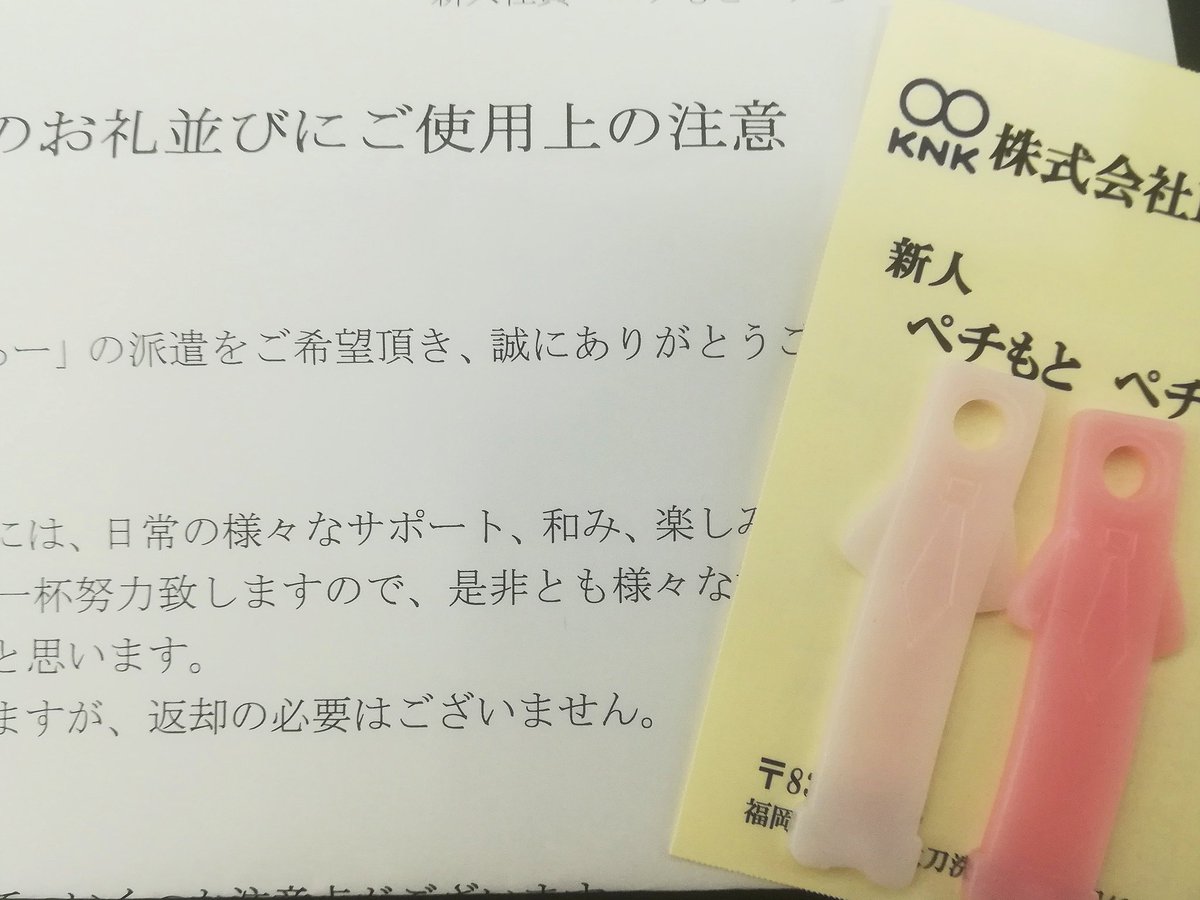 のお礼並びにご使用上の注意
ー」の派遣をご希望頂き、誠にありがとうご
には、日常の様々なサポート、和み、楽しみ
一杯努力致しますので、是非とも様々な
と思います。
ますが、返却の必要はございません。
KNK 株式会社
新人
ペチもと ペチ
〒83
福岡
刀洗